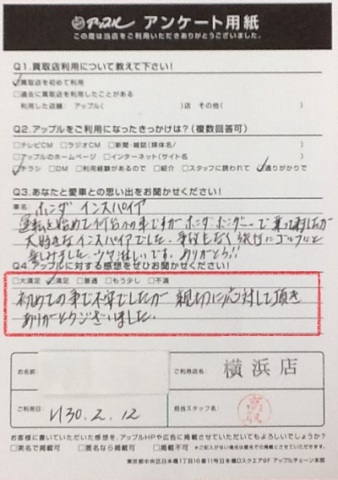 アップル アンケート用紙
この度は当店をご利用いただきありがとうございました。
Q1.買取店利用について教えて下さい!
☑買取店を初めて利用
□過去に買取店を利用したことがある
利用した店舗: アップル( )店 その他( )
Q2.アップルをご利用になったきっかけは?(複数回答可)
□テレビCM □ラジオCM □新聞・雑誌(媒体名/ )
□アップルのホームページ □インターネット(サイト名 )
☑チラシ □DM □利用経験があるので □紹介 □スタッフに誘われて ☑通りがかりで
Q3.あなたと愛車との思い出をお聞かせください!
車名: ホンダ インスパイア
運転を始めて何台かの車ですが ホンダ ホンダーで乗って来ましたが
大好きなインスパイアでした。事故もなく旅行にゴルフにと
楽しみました ウウ淋しいです。ありがとう!!
Q4.アップルに対する感想をぜひお聞かせください!
□大満足 ☑満足 □普通 □もう少し □不満
初めての事で不安でしたが 親切に応対して頂き
ありがとうございました。
お名前:
ご利用店名: 横浜店
ご利用日: H30.2.12
担当スタッフ名:
お客様に書いていただいた感想を、アップルHPや広告に掲載させていただいてもよろしいでしょうか?
□実名で掲載可 □匿名なら掲載可 □掲載不可
東京都中央区日本橋1丁目16番11号日本橋Dスクエア8F アップルチェーン本部